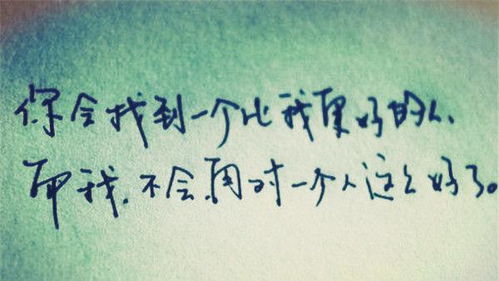 你会找到一个比我更好的人、
而我、不会再对一个人这么好了。